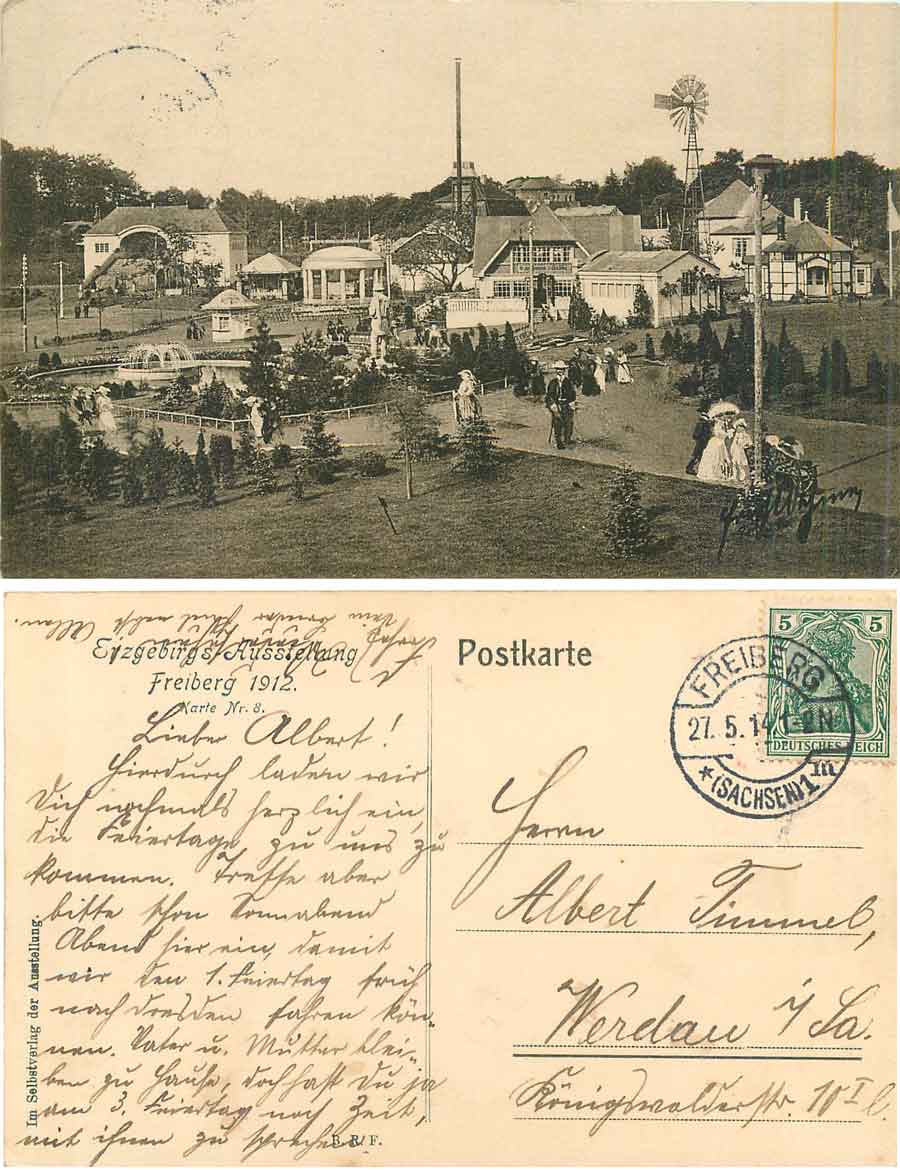 Erzgebirgs-Ausstellung
Freiberg 1912.
Karte Nr. 8.
Lieber Albert!
Hierdurch laden wir
Dich nochmals herzlich ein,
die Feiertage zu uns zu
kommen. Treffe aber
bitte schon Sonnabend
Abend hier ein, damit
wir den 1. Feiertag früh
nach Dresden fahren kön-
nen. Vater u. Mutter blei-
ben zu Hause, doch hast Du ja
am 3. Feiertag noch Zeit,
mit ihnen zu sprechen.
Dein Bruder
Im Selbstverlag der Ausstellung.
B. R/F.
Postkarte
5 5
DEUTSCHES REICH
FREIBERG
27. 5. 14. 1-2N
*(SACHSEN)1 m
Herrn
Albert Timmel,
Werdau i/Sa.
Königswalderstr. 10 I l.